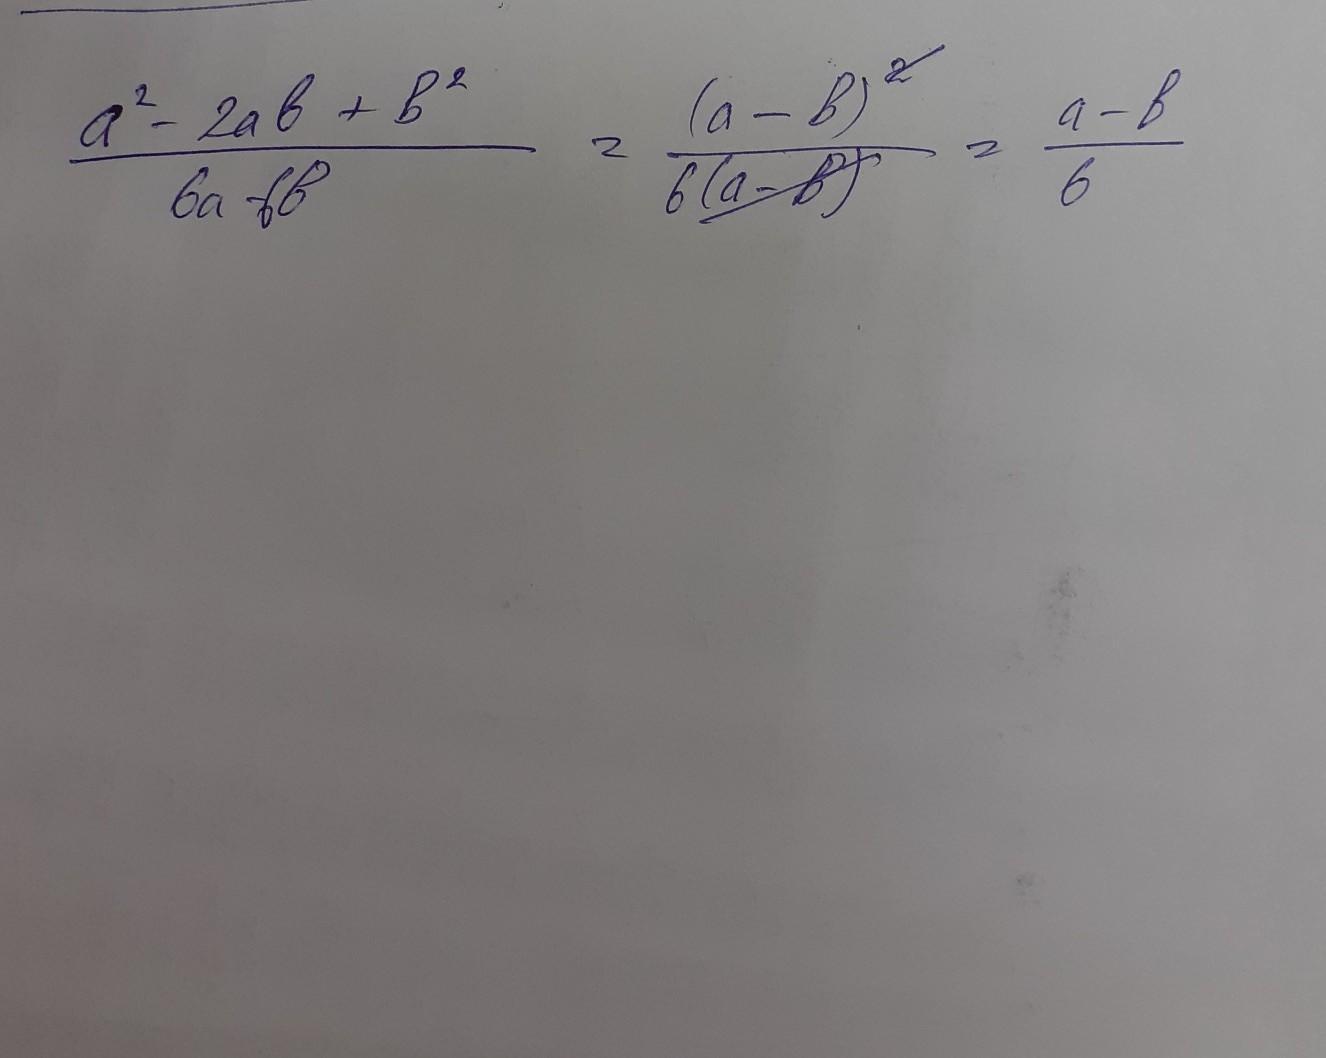 a² - 2ab + b² / 6a - 6b = (a - b)² / 6(a - b) = a - b / 6